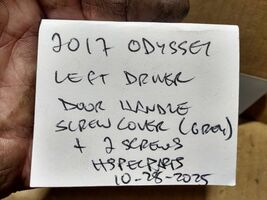 2017 ODYSSEY
LEFT DRIVER
DOOR HANDLE
SCREW COVER (GREY)
+ 2 SCREWS
HSPECPARTS
10-28-2025